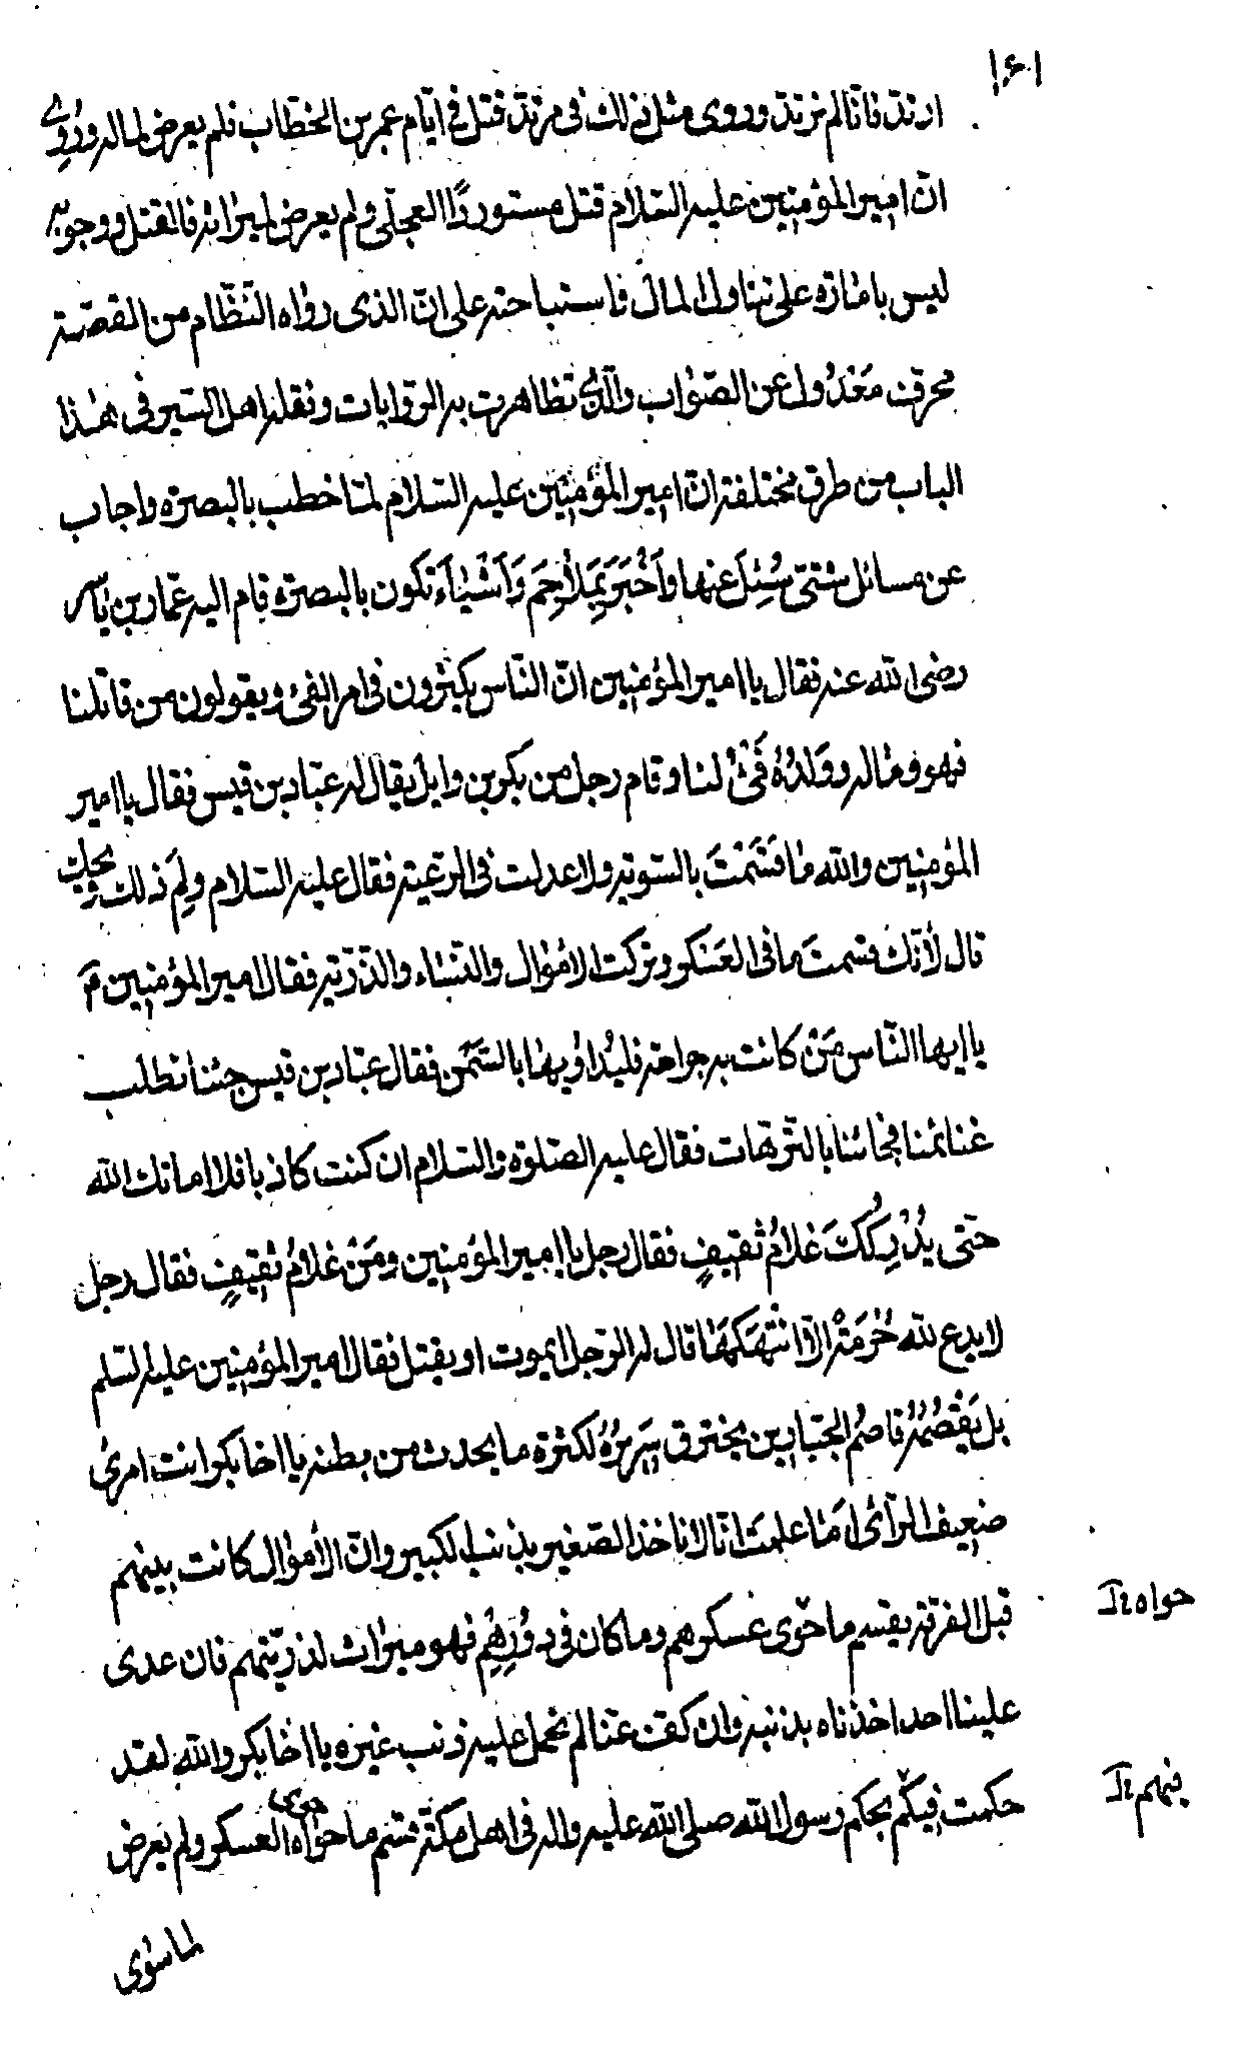 ۱۶۱
ارتدّ فانّا لم نرتدّ وروى مثل ذلك فى مرتدّ قتل فى ايّام عمر بن الخطّاب فلم يعرض لماله وروى
انّ امير المؤمنين عليه السّلام قتل مستوردًا العجلّى ولم يعرض لميراثه فالقتل ووجوبه
ليس بامارة على تناول المال فاستباحته على انّ الذى رواه النّظّام من القصّة
محرّفة معدول عن الصّواب والّذى تظاهرت به الرّوايات ونقله اهل السّير فى هذا
الباب من طرق مختلفة انّ امير المؤمنين عليه السّلام لمّا خطب بالبصرة واجاب
عن مسائل شتّى سُئِلَ عنها وَاَخْبَرَ بِمَلَاحِمَ وَاَشْيَاءَ تكون بالبصرة قام اليه عمّار بن ياسر
رضى الله عنه فقال يا امير المؤمنين انّ النّاس يكثرون فى امر الفىء ويقولون من قاتلنا
فهو وماله وولدُهُ فَىْءٌ لنا وقام رجل من بكر بن وايل يقال له عبّاد بن قيس فقال يا امير
المؤمنين والله ما قَسَّمْتَ بالسّويّة ولا عدلت فى الرّعيّة فقال عليه السّلام ولِمَ ذلك ويحك
قال لأنّك قسمتَ ما فى العَسْكر وتركت الاموال والنّساء والذّرّيّة فقال امير المؤمنين ع
يا ايها النّاس مَنْ كانت به جراحة فليُداويها بالسّمْن فقال عبّاد بن قيس جئنا نطلب
غنائمنا فجائنا بالتّرّهات فقال عليه الصّلوة والسّلام ان كنت كاذبا فلا اماتك الله
حتّى يُدْرِكُكَ غلامُ ثقيفٍ فقال رجل يا امير المؤمنين ومَنْ غلامُ ثقيفٍ فقال رجل
لا يدع لله حُرمَةً الّا انْتَهَكَهَا قال له الرّجل ايموت او يقتل فقال امير المؤمنين عليه السّلم
بل يَقْصُمُهُ قاصمُ الجبّارين يخترق سَرِيرُهُ لكثرة ما يحدث من بطنه يا اخا بكر انت امرئ
ضعيف الرّأى اَمَا علمتَ انّا لا ناخذ الصّغير بذنب الكبير وانّ الأموال كانت بينهم
قبل الفرقة يقسم ما حوى عسكرهم وما كان فى دُوْرِهِمْ فهو ميراث لذرّيّتهم فان عدى
حواه خ‌ل
علينا احد اخذناه بذنبه وان كفّ عنّا لم نحمل عليه ذنب غيره يا اخا بكر والله لقد
حكمت فيكم بحكم رسول الله صلى الله عليه واله فى اهل مكّة قسّم ما حواه العسكر ولم يعرض
حوى
فيهم خ‌ل
لما سوى